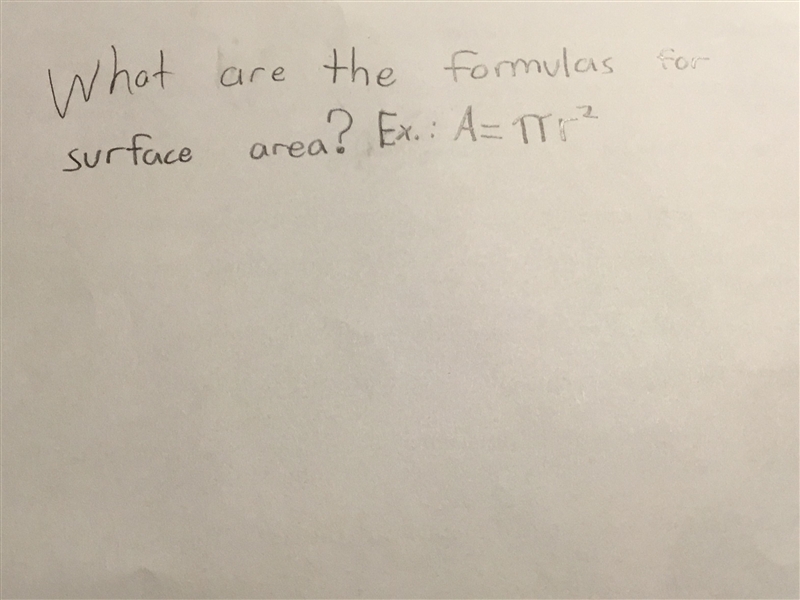 What are the formulas for
surface area? Ex.: A = πr²